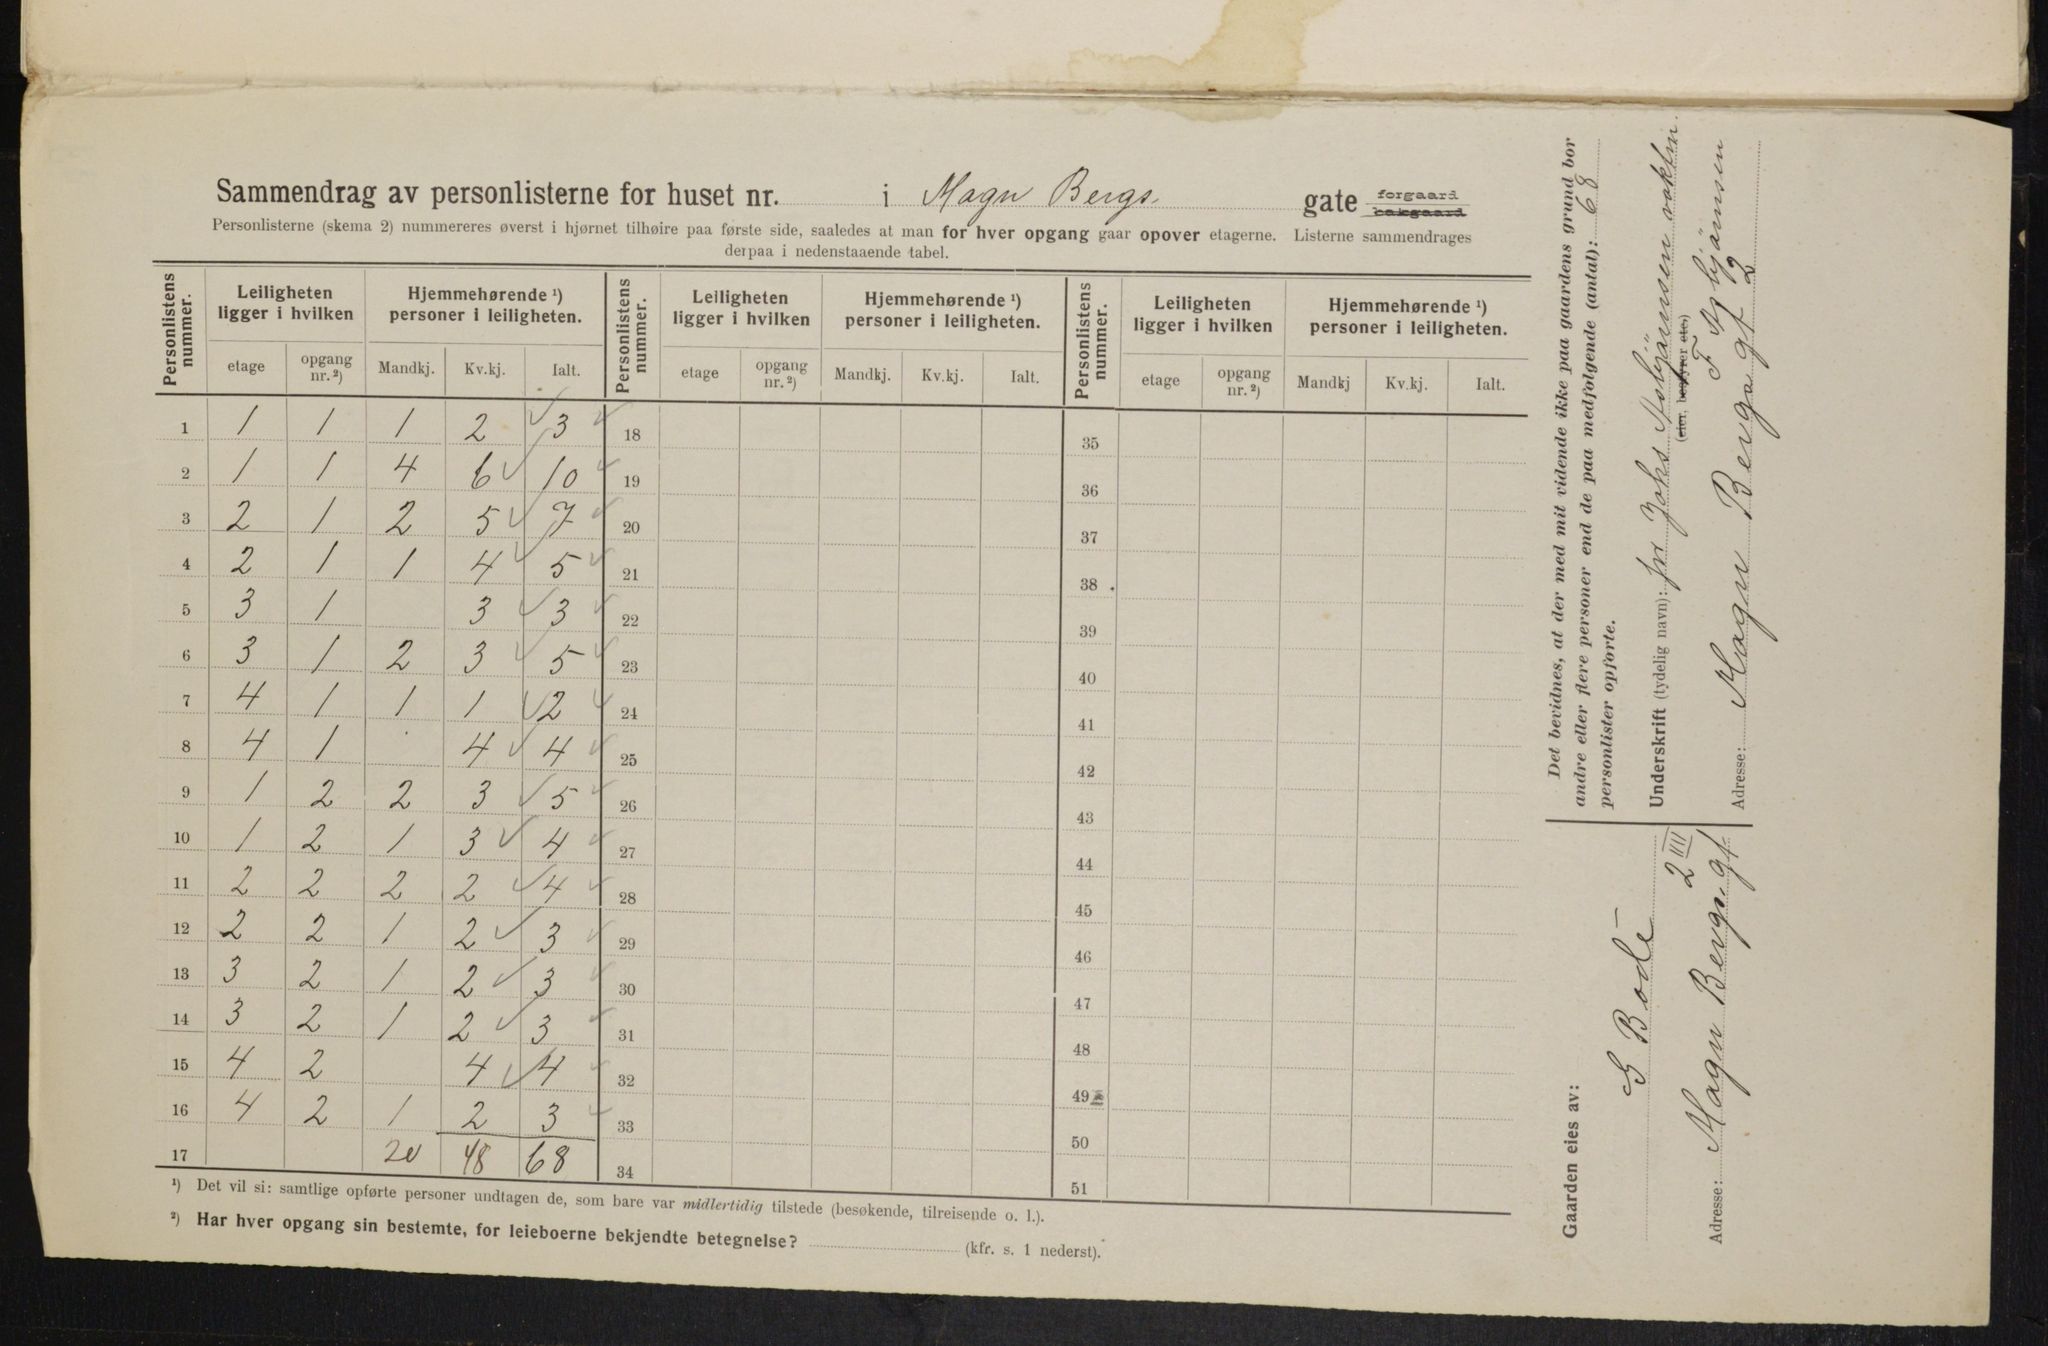 Sammendrag av personlisterne for huset nr. i Magn Bergs gate forgaard bakgaard
Personlisterne (skema 2) nummereres øverst i hjørnet tilhøire paa første side, saaledes at man for hver opgang gaar opover etagerne. Listerne sammendrages
derpaa i nedenstaaende tabel.
Personlistens nummer. Leiligheten ligger i hvilken Hjemmehørende ¹) personer i leiligheten. Personlistens nummer. Leiligheten ligger i hvilken Hjemmehørende ¹) personer i leiligheten. Personlistens nummer. Leiligheten ligger i hvilken Hjemmehørende ¹) personer i leiligheten.
etage opgang nr. ²) Mandkj. Kv.kj. Ialt. etage opgang nr. ²) Mandkj. Kv.kj. Ialt. etage opgang nr. ²) Mandkj Kv.kj. Ialt.
1 1 1 1 2 3 18 35
2 1 1 4 6 10 19 36
3 2 1 2 5 7 20 37
4 2 1 1 4 5 21 38
5 3 1 3 3 22 39
6 3 1 2 3 5 23 40
7 4 1 1 1 2 24 41
8 4 1 4 4 25 42
9 1 2 2 3 5 26 43
10 1 2 1 3 4 27 44
11 2 2 2 2 4 28 45
12 2 2 1 2 3 29 46
13 3 2 1 2 3 30 47
14 3 2 1 2 3 31 48
15 4 2 4 4 32 49
16 4 2 1 2 3 33 50
17 20 48 68 34 51
¹) Det vil si: samtlige opførte personer undtagen de, som bare var midlertidig tilstede (besøkende, tilreisende o. l.).
²) Har hver opgang sin bestemte, for leieboerne bekjendte betegnelse? (kfr. s. 1 nederst).
Det bevidnes, at der med mit vidende ikke paa gaardens grund bor
andre eller flere personer end de paa medfølgende (antal): 68
personlister opførte.
Underskrift (tydelig navn): pr Johs Asbjørnsen
(eier, bestyrer etc)
F Asbjørnsen
Adresse: Magn Bergs gt 2
Gaarden eies av:
G Bode
Adresse: Magn Bergs gt 2 IIII